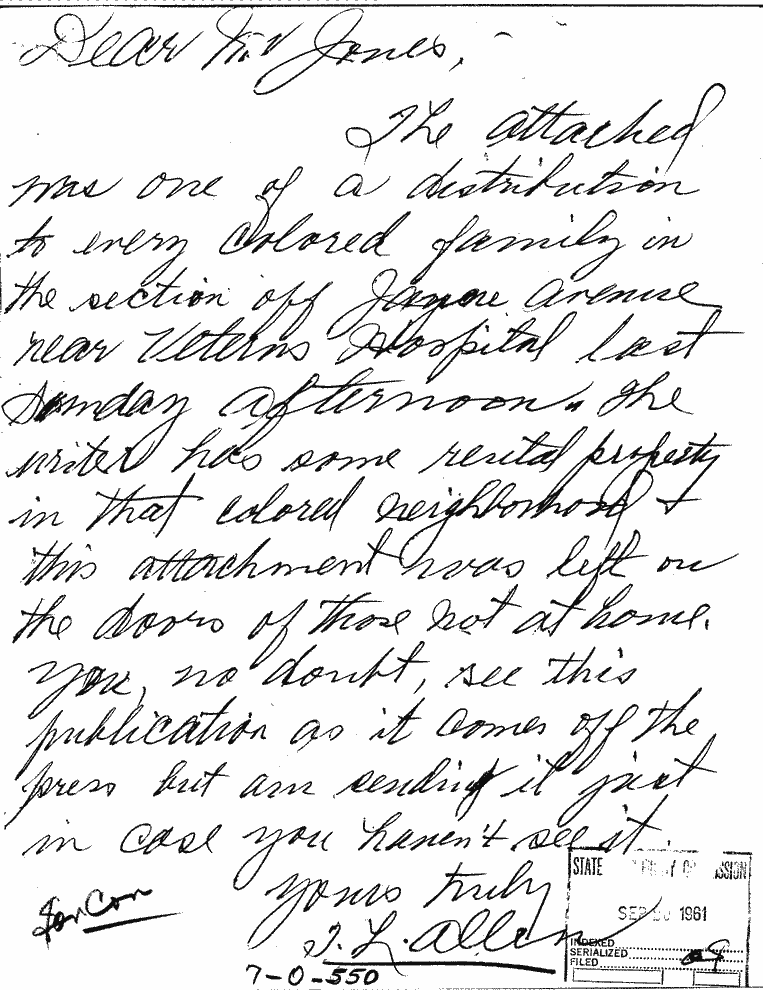 Dear Mr Jones,
The attached
was one of a distribution
to every colored family in
the section off Jayne Avenue
near Veterns Hospital last
Sunday afternoon. The
writer has some rental property
in that colored neighborhood &
this attachment was left on
the doors of those not at home.
You, no doubt, see this
publication as it comes off the
press but am sending it just
in case you haven't see it.
Yours truly
T. L. Allen
7-0-550
STATE
SEP 1961
INDEXED
SERIALIZED
FILED